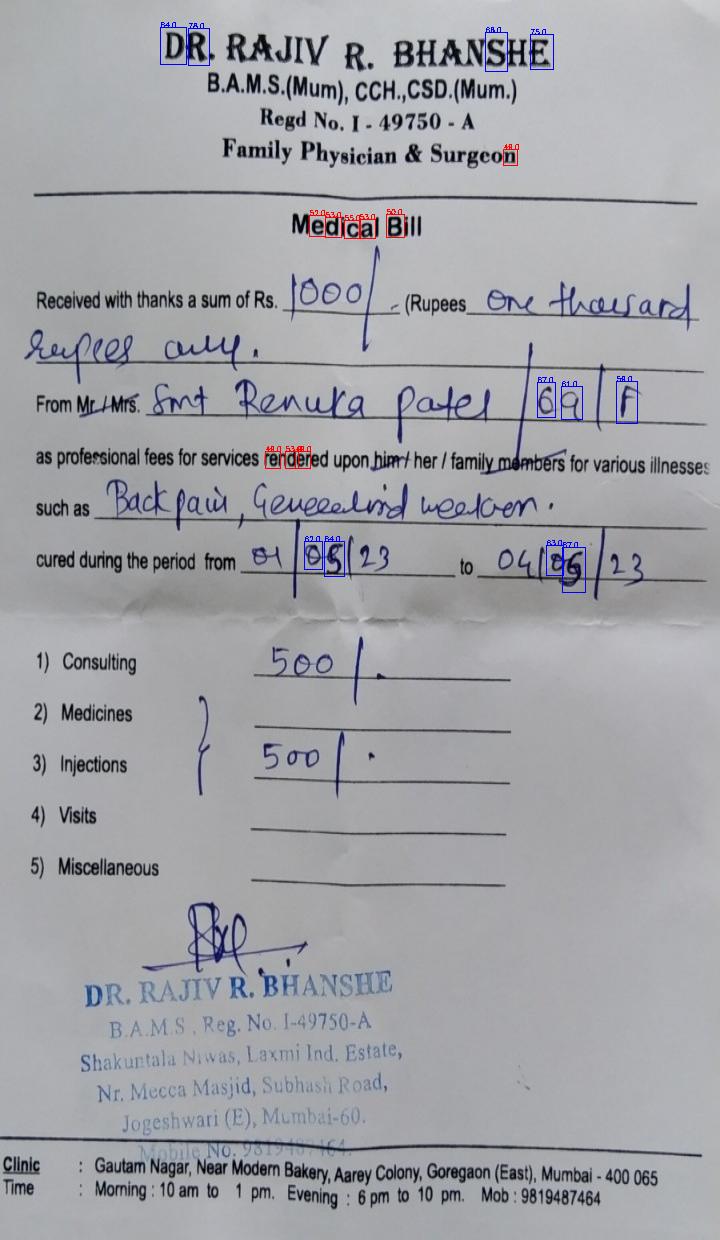 DR. RAJIV R. BHANSHE
B.A.M.S.(Mum), CCH.,CSD.(Mum.)
Regd No. I - 49750 - A
Family Physician & Surgeon
Medical Bill
Received with thanks a sum of Rs. 1000/- (Rupees One thousand
rupees only.
From Mr./Mrs. Smt Renuka Patel / 69 / F
as professional fees for services rendered upon him / her / family members for various illnesses
such as Back pain,
cured during the period from 01/05/23 to 04/05/23
1) Consulting 500/-
2) Medicines
3) Injections 500/-
4) Visits
5) Miscellaneous
DR. RAJIV R. BHANSHE
B.A.M.S , Reg. No. I-49750-A
Shakuntala Niwas, Laxmi Ind. Estate,
Nr. Mecca Masjid, Subhash Road,
Jogeshwari (E), Mumbai-60.
Mobile No. 9819487464.
Clinic : Gautam Nagar, Near Modern Bakery, Aarey Colony, Goregaon (East), Mumbai - 400 065
Time : Morning : 10 am to 1 pm. Evening : 6 pm to 10 pm. Mob : 9819487464